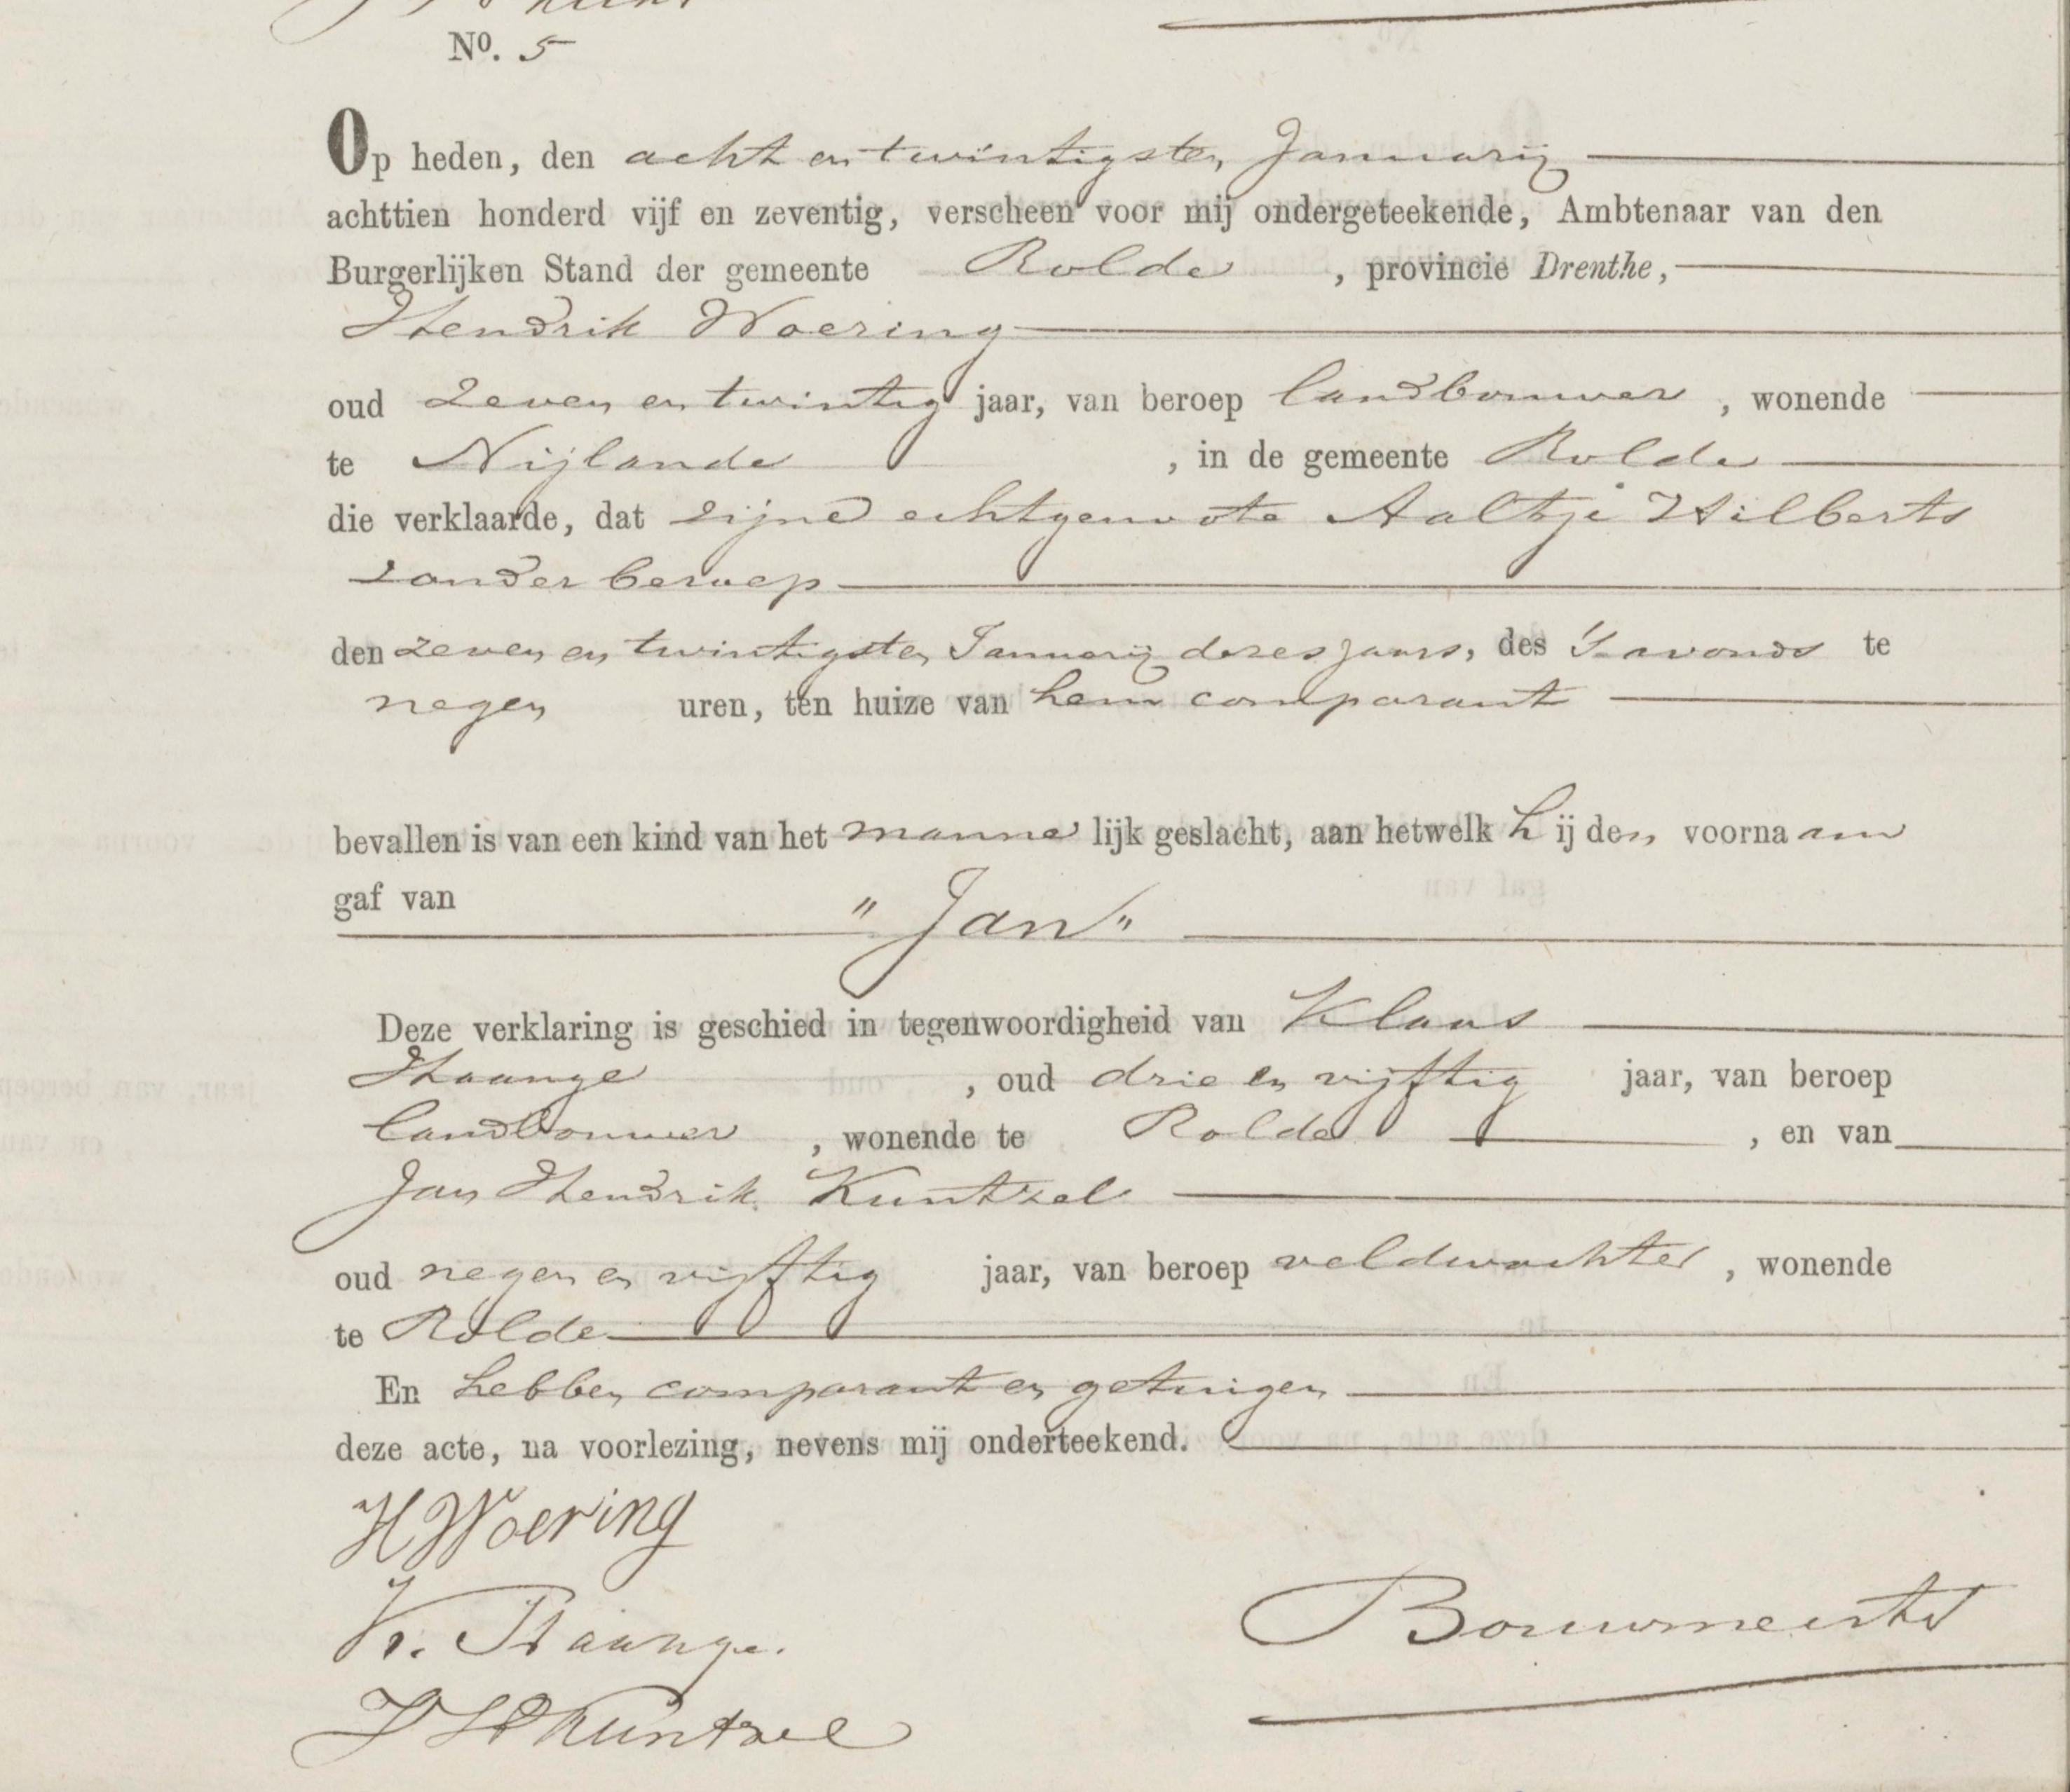 No. 5
Op heden, den acht en twintigsten Januarij
achttien honderd vijf en zeventig, verscheen voor mij ondergeteekende, Ambtenaar van den
Burgerlijken Stand der gemeente Rolde, provincie Drenthe,
Hendrik Woering
oud zeven en twintig jaar, van beroep landbouwer, wonende
te Nijlande, in de gemeente Rolde
die verklaarde, dat zijne echtgenoote Aaltje Hilberts
zonder beroep
den zeven en twintigsten Januarij dezes jaars, des 's avonds te
negen uren, ten huize van hem comparant
bevallen is van een kind van het mannelijk geslacht, aan hetwelk hij den voornaam
gaf van "Jan"
Deze verklaring is geschied in tegenwoordigheid van Klaas
Haange, oud drie en vijftig jaar, van beroep
landbouwer, wonende te Rolde, en van
Jan Hendrik Kuntzel
oud negen en vijftig jaar, van beroep veldwachter, wonende
te Rolde
En hebben comparant en getuigen
deze acte, na voorlezing, nevens mij onderteekend.
H Woering
K. Haange.
Bouwmeester
J H Kuntzel